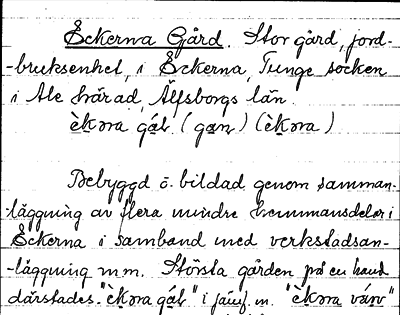 Äckerna Gård. Stor gård, jord-
-bruksenhet, i Äckerna, Tunge socken
i Ale härad, Älfsborgs län.
(gan) (èk̲əra)
Bebyggd o. bildad genom samman-
-läggning av flera mindre hemmansdelar i
Äckerna i samband med verkstadsan-
-läggning m.m. Största gården på en hand
därstades. "èk̲əra" i jämf. m. "èk̲əra